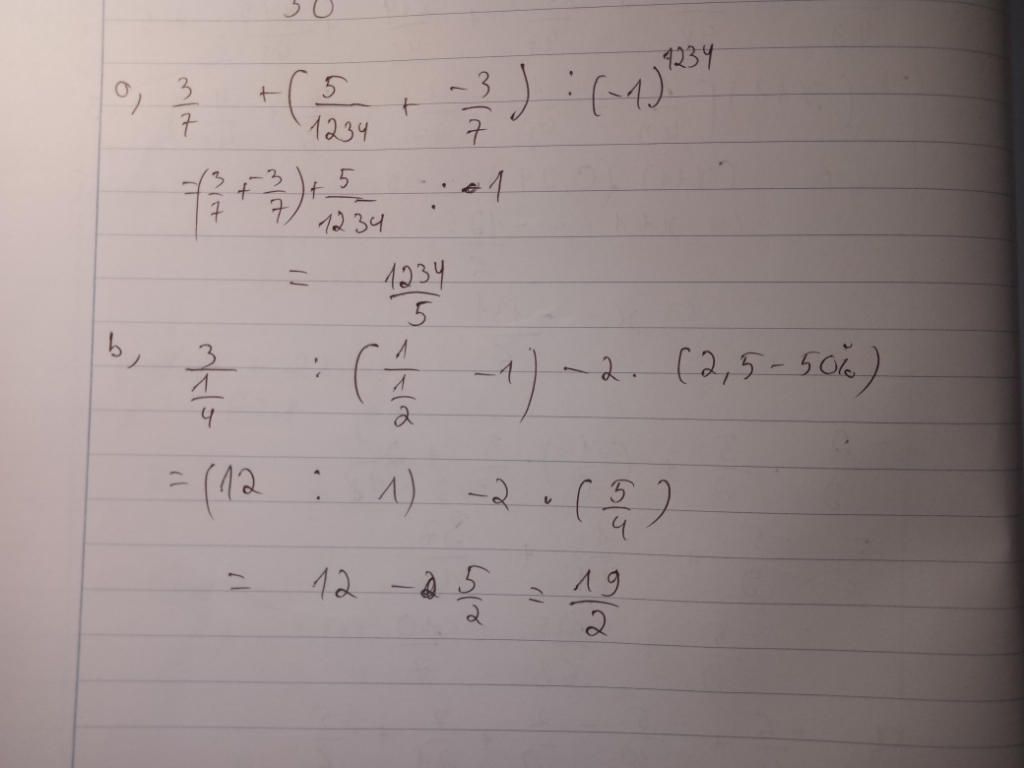 30
a, 3/7 + (5/1234 + -3/7) : (-1)^1234
= (3/7 + -3/7) + 5/1234 : -1
= 1234/5
b, 3/(1/4) : (1/(1/2) - 1) - 2 . (2,5 - 50%)
= (12 : 1) - 2 . (5/4)
= 12 - 5/2 = 19/2